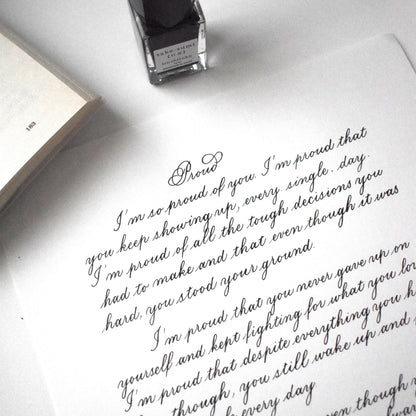 take-sumi
183
Proud
I'm so proud of you. I'm proud that
you keep showing up, every single day.
I'm proud of all the tough decisions you
had to make and that even though it was
hard, you stood your ground.
I'm proud that you never gave up on
yourself and kept fighting for what you lo
I'm proud that despite everything you h
through, you still wake up and
every day
even though y